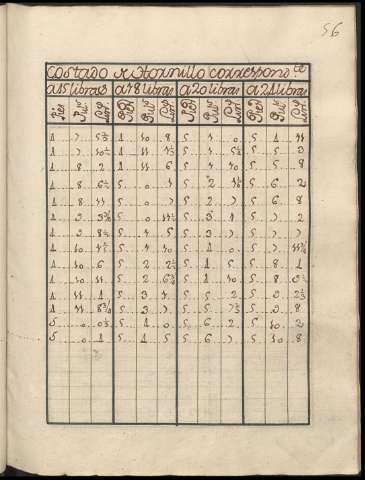 56
Costado x Stornillo correspondte
a 15 libras a 18 libras a 20 libras a 24 libras
Pies Pulgs Lins Pies Pulgs Lins Pies Pulgs Lins Pies Pulgs Lins
4 7 5½ 4 10 8 5 1 0 5 4 11
4 7 10½ 4 11 1½ 5 1 5½ 5 5 3
4 8 2 4 11 6 5 1 10 5 5 8
4 8 6½ 5 0 1 5 2 4½ 5 6 2
4 8 11 5 0 7 5 2 9 5 6 8
4 9 3¾ 5 0 11½ 5 3 1 5 7 2
4 9 8½ 5 1 5 5 3 7 5 7 7
4 10 1½ 5 1 10 5 4 0 5 7 11¾
4 10 6 5 2 2½ 5 4 5 5 8 4
4 10 11 5 2 6¾ 5 4 10 5 8 9½
4 11 4 5 3 1 5 5 2 5 9 2½
4 11 8¾ 5 3 7 5 5 7½ 5 9 8
5 0 0½ 5 4 0 5 6 2 5 10 2
5 0 5 5 4 5 5 6 7 5 10 8